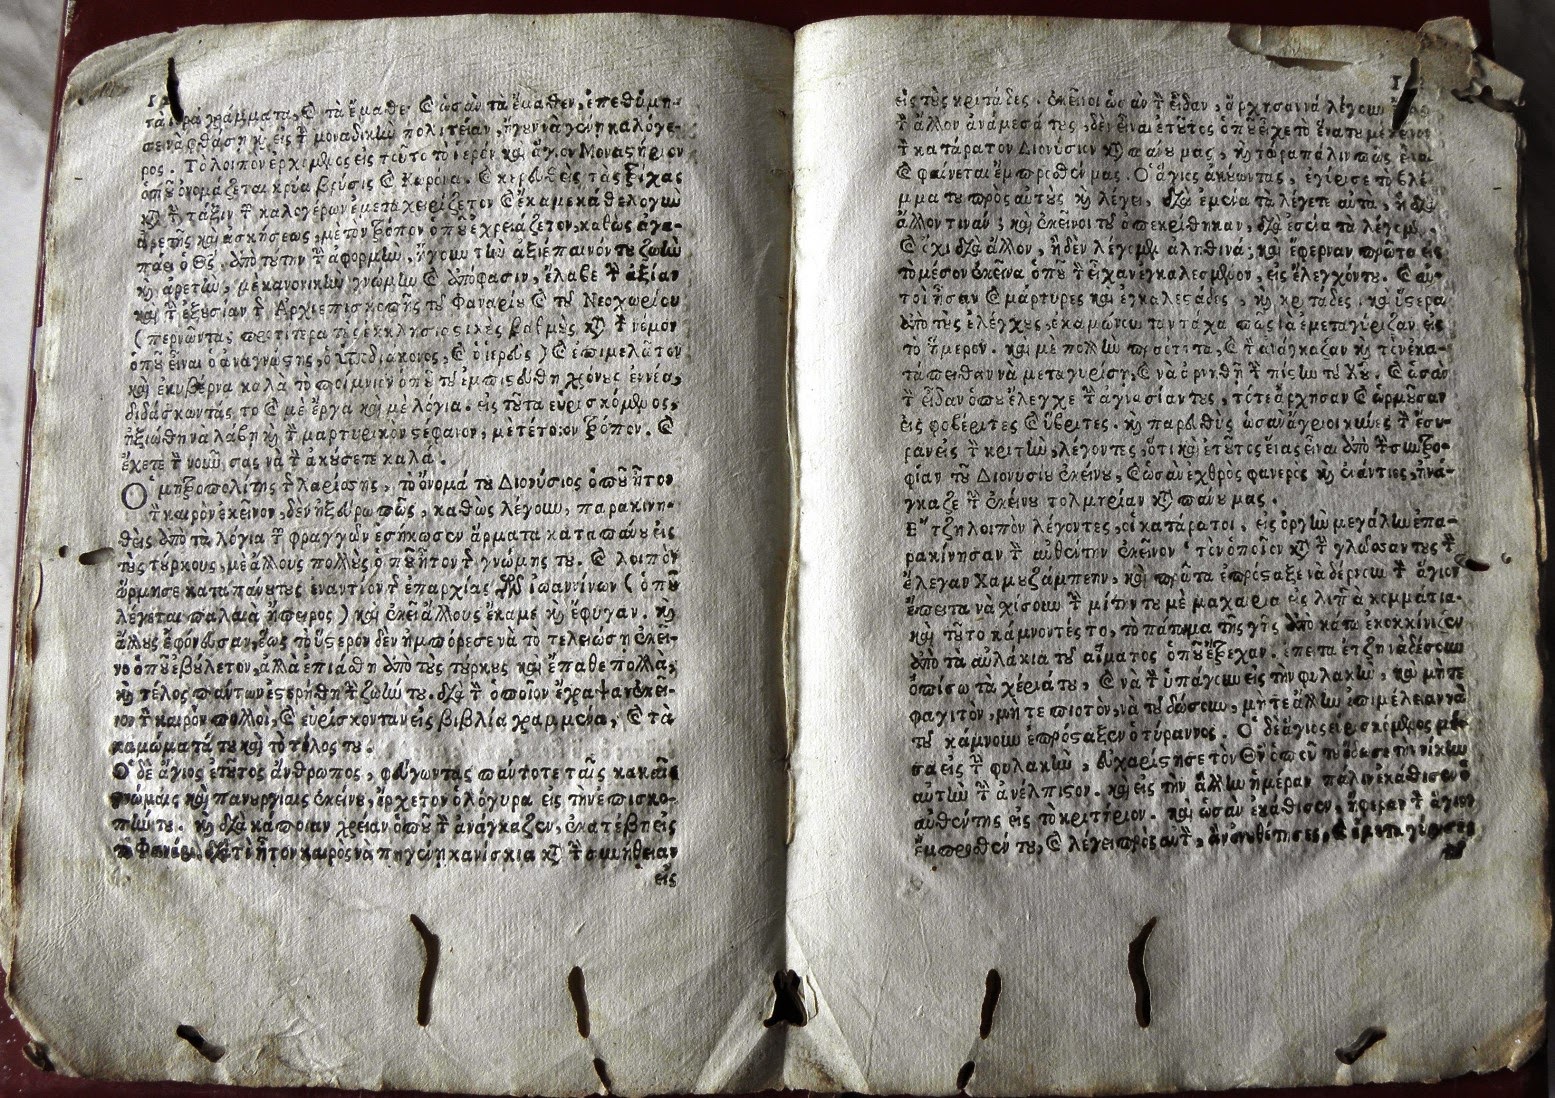 τὰ ἱερὰ γράμματα, καὶ τὰ ἔμαθε· καὶ ὡσὰν τὰ ἔμαθεν, ἐπεθύμη-
σε νὰ φθάσῃ κ εἰς τ μοναδικὴν πολιτείαν, ἤγουν νὰ γένῃ καλόγε-
ρος. Τὸ λοιπὸν ἐρχόμενος εἰς τοῦτο τὸ ἱερὸν καὶ ἅγιον Μοναστήριον
ὁποῦ ὀνομάζεται κρύα βρύσις καὶ Κωρόνα. καὶ κερδεὶς τὰς τρίχας
κτ τ τάξιν τ καλογέρων ἐμεταχειρίζετον καὶ ἔκαμε κάθε λογὴν
ἀρετῆς καὶ ἀσκήσεως, μὲ τὸν τρόπον ὁποῦ ἐχρειάζετον, καθὼς ἀγα-
πάει ὁ Θς, ἀπὸ τούτην τ ἀφορμὴν, ἤγουν τὴν ἀξιέπαινόν του ζωὴν
κ ἀρετὴν, μὲ κανονικὴν γνώμην καὶ ἀπόφασιν, ἔλαβε τ ἀξίαν
καὶ τ ἐξουσίαν τ Ἀρχιεπισκοπῆς τοῦ Φαναρίου καὶ τοῦ Νεοχωρίου
(περνῶντας προτίτερα τῆς ἐκκλησιαστικὲς βαθμοὺς κτ τ νόμον
ὁποῦ εἶναι ὁ ἀναγνώστης, ὁ ὑποδιάκονος, καὶ ὁ ἱερεὺς) καὶ ἐπιμελᾶτον
καὶ ἐκυβέρνα καλὰ τὸ ποίμνιον ὁποῦ τοῦ ἐμπιστεύθη χρόνους ἐννέα,
διδάσκωντάς το καὶ μὲ ἔργα καὶ μὲ λόγια. εἰς τοῦτα εὑρισκόμενος,
ἠξιώθη νὰ λάβῃ κ τ μαρτυρικὸν στέφανον, μὲ τέτοιον τρόπον. καὶ
ἔχετε τ νοῦν σας νὰ τ ἀκούσετε καλά.
Ὁ μητροπολίτης τ Λαρίσσης, τὸ ὄνομά του Διονύσιος ὁποῦ ἦτον
τ καιρὸν ἐκεῖνον, δὲν ἠξεύρω πῶς, καθὼς λέγουν, παρακινη-
θεὶς ἀπὸ τὰ λόγια τ φραγγῶν ἐσήκωσεν ἅρματα καταπάνου εἰς
τοὺς τούρκους, μὲ ἄλλους πολλοὺς ὁποῦ ἦτον τ γνώμης του. καὶ λοιπὸν
ὥρμησε καταπάνου τους ἐναντίον τ ἐπαρχίας τῶν ἰωαννίνων (ὁποῦ
λέγεται παλαιὰ ἤπειρος) καὶ ἐκεῖ ἄλλους ἔκαμε κ ἔφυγαν. κ
ἄλλους ἐφόνευσαν, ἕως τὸ ὕστερον δὲν ἠμπόρεσε νὰ τὸ τελειώσῃ ἐκεῖ-
νο ὁποῦ ἐβούλετον, ἀλλὰ ἐπιάσθη ἀπὸ τοὺς τούρκους καὶ ἔπαθε πολλὰ,
κ τέλος πάντων ἐστερήθη τ ζωήν του. διὰ τ ὁποῖον ἔγραψαν ἐκεῖ-
νον τ καιρὸν πολλοὶ, καὶ εὑρίσκονταν εἰς βιβλία γραμμένα, καὶ τὰ
καμώματά του καὶ τὸ τέλος του.
Ὁ δὲ ἅγιος ἐτοῦτος ἄνθρωπος, φεύγωντας πάντοτε ταῖς κακαῖς
γνώμαις καὶ πανουργίαις ἐκείνου, ἔρχετον ὁλόγυρα εἰς τὴν ἐπισκο-
πήν του. κ διὰ κάποιαν χρείαν ὁποῦ τ ἀνάγκαζεν, ἐκατέβη εἰς
τὸ Φανάρι, διατὶ ἦτον καιρὸς νὰ πηγαίνῃ κανίσκια κτ τ συνήθειαν
εἰς
εἰς τοὺς κριτάδες. ἐκεῖνοι ὡσὰν τ εἶδαν, ἄρχισαν νὰ λέγουν
τ ἄλλον ἀνάμεσά τους, δὲν εἶναι ἐτοῦτος ὁποῦ εἶχε τὸ
τ κατάρατον Διονύσιον κτ πάνου μας, κ τώρα πάλιν πῶς εἶναι
καὶ φαίνεται ἔμπροσθέν μας. Ὁ ἅγιος ἀκούωντας, ἐγύρισε τὸ βλέ-
μμα του πρὸς αὐτοὺς κ λέγει, διὰ ἐμένα τὰ λέγετε αὐτὰ, ἢ διὰ
ἄλλον τινάν; καὶ ἐκεῖνοι τοῦ ἀπεκρίθηκαν, διὰ ἐσένα τὰ λέγομεν
καὶ ὄχι διὰ ἄλλον, ἢ δὲν λέγομεν ἀληθινά; καὶ ἔφερναν πρῶτα εἰς
τὸ μέσον ἐκεῖνα ὁποῦ τ εἶχαν ἐγκαλεσμένον, εἰς ἔλεγχόν του. καὶ αὐ-
τοὶ ἦσαν καὶ μάρτυρες καὶ ἐγκαλεστάδες, κ κριτάδες. καὶ ὕστερα
ἀπὸ τοὺς ἐλέγχους, ἐκαμώνουνταν τάχα πῶς τὰ ἐμεταγύριζαν εἰς
τὸ ἥμερον. καὶ μὲ πολλὴν πραότητα, καὶ τ ἀνάγκαζαν κ τὸν ἐκα-
τάπειθαν νὰ μεταγυρίσῃ, καὶ νὰ ἀρνηθῇ τ πίστιν τοῦ Χυ. καὶ ὡσὰν
τ εἶδαν ὁποῦ ἔλεγχε τ ἀγνωσίαν τους, τότε ἄρχησαν καὶ ὥρμουσαν
εἰς φοβέριτες καὶ ὕβριτες. κ παρευθὺς ὡσὰν ἄγριοι κύνες τ ἔσυ-
ραν εἰς τ κριτὴν, λέγοντες, ὅτι κ ἐτοῦτος ἕνας εἶναι ἀπὸ τ συντρο-
φίαν τοῦ Διονυσίου ἐκείνου, καὶ ὡσὰν ἐχθρὸς φανερὸς κ ἐναντίος, ἠνά-
γκαζε τ ἐκείνου τολμηρίαν κτ πάνου μας.
Ἔτζη λοιπὸν λέγοντες, οἱ κατάρατοι, εἰς ὀργὴν μεγάλην ἐπα-
ρακίνησαν τ αὐθέντην ἐκεῖνον· τὸν ὁποῖον κτ τ γλῶσσάν τους τ
ἔλεγαν Χαμουζάμπεην, καὶ πρῶτα ἐπρόσταξε νὰ δέρνουν τ ἅγιον
ἔπειτα νὰ σχίσουν τ μύτην του μὲ μαχαίρια εἰς λιπτὰ κομμάτια.
καὶ τοῦτο κάμνοντές το, τὸ πάτωμα τῆς γῆς ἀπὸ κάτω ἐκοκκίνιζεν
ἀπὸ τὰ αὐλάκια τοῦ αἵματος ὁποῦ ἔτρεχαν. ἔπειτα ἔτζη νὰ δέσουν
ὀπίσω τὰ χέριά του, καὶ νὰ τ ὑπάγουν εἰς τὴν φυλακὴν, καὶ μήτε
φαγιτὸν, μήτε πιοτὸν, νὰ τοῦ δώσουν, μήτε ἄλλην ἐπιμέλειαν νὰ
τοῦ κάμνουν ἐπρόσταξεν ὁ τύραννος. Ὁ δὲ ἅγιος εὑρισκόμενος μέ-
σα εἰς τ φυλακὴν, εὐχαρίστησε τὸν Θν ὁποῦ τοῦ ἔδωσε τὴν νίκην
αὐτὴν τ ἀνέλπιστον. καὶ εἰς τὴν ἄλλην ἡμέραν πάλιν ἐκάθισεν ὁ
αὐθέντης εἰς τὸ κριτήριον. καὶ ὡσὰν ἐκάθισεν, ἔφεραν τ ἅγιον
ἔμπροσθέν του, καὶ λέγει πρὸς αὐτ, ἂν ἐνουθέτησες, καὶ ἐμεταγύρισες